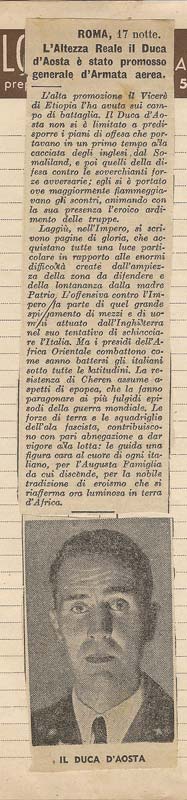 LO
A
prep
5
ROMA, 17 notte.
L'Altezza Reale il Duca
d'Aosta è stato promosso
generale d'Armata aerea.
L'alta promozione il Vicerè
di Etiopia l'ha avuta sui cam
po di battaglia. Il Duca d'Ao
sta non si è limitato a predi-
sporre i piani di offesa che por-
tavano in un primo tempo alla
cacciata degli inglesi dal So-
maliland, e poi quelli della di-
fesa contro le soverchianti for-
ze avversarie; egli si è portato
ove maggiormente fiammeggia-
vano gli scontri, animando con
la sua presenza l'eroico ardi-
mento delle truppe.
Laggiù, nell'Impero, si scri-
vono pagine di gloria, che ac-
quistano tutte una luce parti-
colare in rapporto alle enormi
difficoltà create dall'ampiez-
za della zona da difendere e
della lontananza dalla madre
Patria. L'offensiva contro l'Im-
pero fa parte di quel grande
spiegamento di mezzi e di uo-
mini attuato dall'Inghilterra
nel suo tentativo di schiaccia-
re l'Italia. Ma i presidi dell'A
frica Orientale combattono co-
me sanno battersi gli italiani
sotto tutte le latitudini. La re-
sistenza di Cheren assume a-
spetti di epopea, che la fanno
paragonare ai più fulgidi epi-
sodi della guerra mondiale. Le
forze di terra e le squadriglie
dell'ala fascista, contribuisco-
no con pari abnegazione a dar
vigore alla lotta: le guida una
figura cara al cuore di ogni ita-
liano, per l'Augusta Famiglia
da cui discende, per la nobile
tradizione di eroismo che si
riafferma ora luminosa in terra
d'Africa.
IL DUCA D'AOSTA